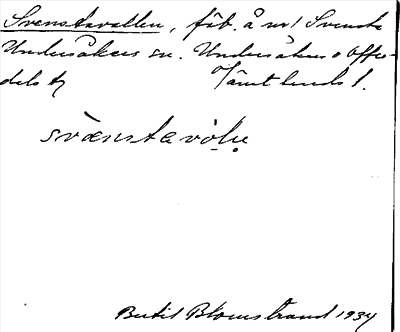 Svenstavallen, fäb. å nr 1 Svensta
Undersåkers sn. Undersåkers o Offer-
dals tg Jämtlands l.
svænstavɔ̀lạ
Bertil Blomstrand 1934